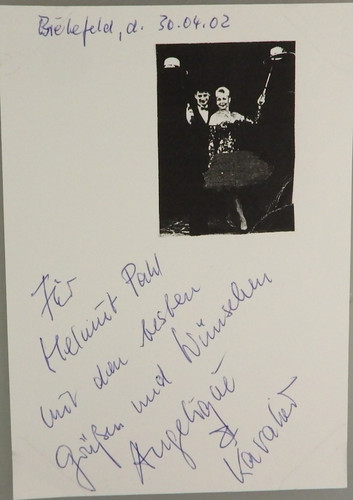 Bielefeld, d. 30.04.02
Für
Helmut Pahl
mit den besten
Grüßen und Wünschen
Angelique
&
Kavalier